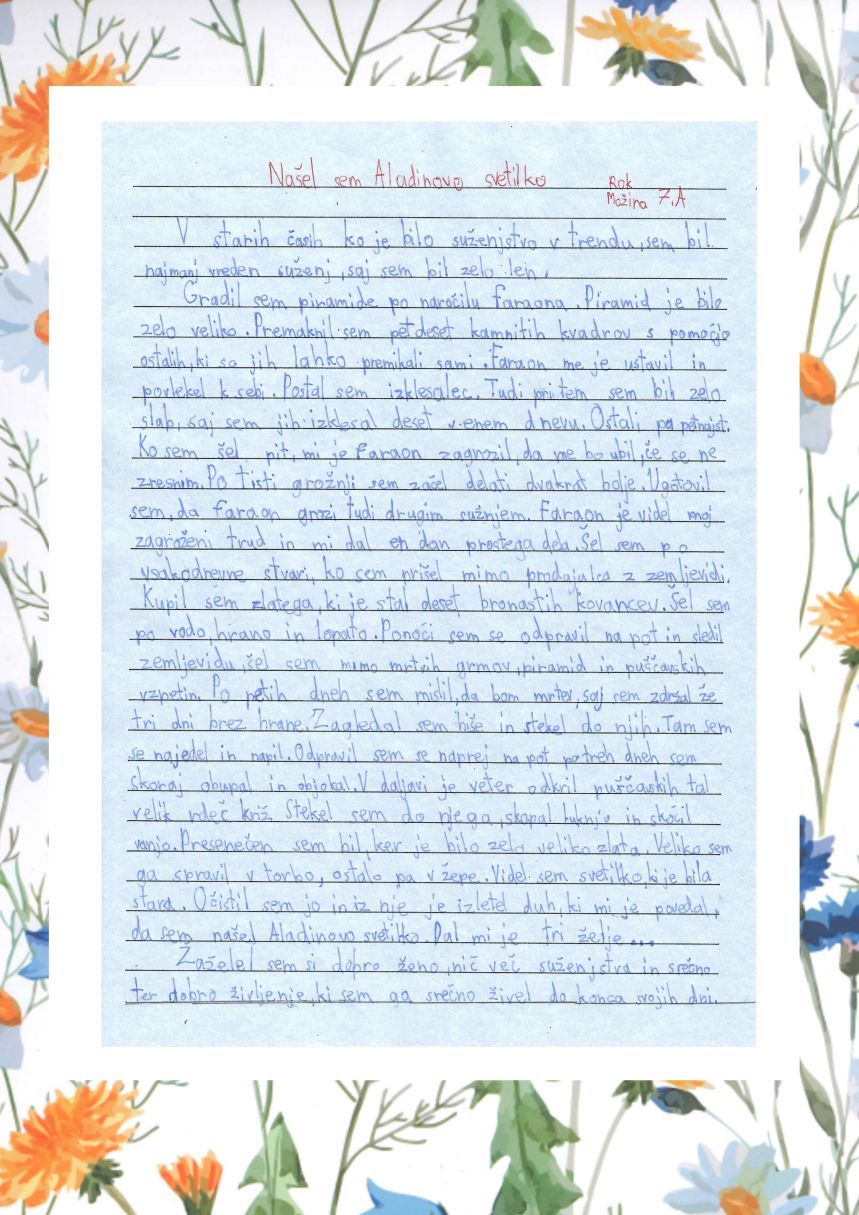 Našel sem Aladinovo svetilko
Rok
Mažina 7.A
V starih časih ko je bilo suženjstvo v trendu, sem bil
najmanj vreden suženj, saj sem bil zelo len.
Gradil sem piramide po naročilu faraona. Piramid je bilo
zelo veliko. Premaknil sem petdeset kamnitih kvadrov s pomočjo
ostalih, ki so jih lahko premikali sami. Faraon me je ustavil in
povlekel k sebi. Postal sem izklesalec. Tudi pri tem sem bil zelo
slab, saj sem jih izklesal deset v enem dnevu. Ostali pa petnajst.
Ko sem šel pit, mi je faraon zagrozil, da me bo ubil, če se ne
zresnim. Po tisti grožnji sem začel delati dvakrat bolje. Ugotovil
sem, da faraon grozi tudi drugim sužnjem. Faraon je videl moj
zagroženi trud in mi dal en dan prostega dela. Šel sem po
vsakodnevne stvari, ko sem prišel mimo prodajalca z zemljevidi.
Kupil sem zlatega, ki je stal deset bronastih kovancev. Šel sem
po vodo, hrano in lopato. Ponoči sem se odpravil na pot in sledil
zemljevidu, šel sem mimo mrtvih grmov, piramid in puščavskih
vzpetin. Po petih dneh sem mislil, da bom mrtev, saj sem zdržal že
tri dni brez hrane. Zagledal sem hiše in stekel do njih. Tam sem
se najedel in napil. Odpravil sem se naprej na pot po treh dneh sem
skoraj obupal in objokal. V daljavi je veter odkril puščavskih tal
velik rdeč križ. Stekel sem do njega, skopal luknjo in skočil
vanjo. Presenečen sem bil, ker je bilo zelo veliko zlata. Veliko sem
ga spravil v torbo, ostalo pa v žepe. Videl sem svetilko, ki je bila
stara. Očistil sem jo in iz nje je izletel duh, ki mi je povedal,
da sem našel Aladinovo svetilko. Dal mi je tri želje...
Zaželel sem si dobro ženo, nič več suženjstva in srečno
ter dobro življenje, ki sem ga srečno živel do konca svojih dni.